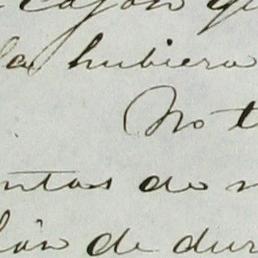 cajón qu
la hubiera
No t
ntas de n
ión de dur